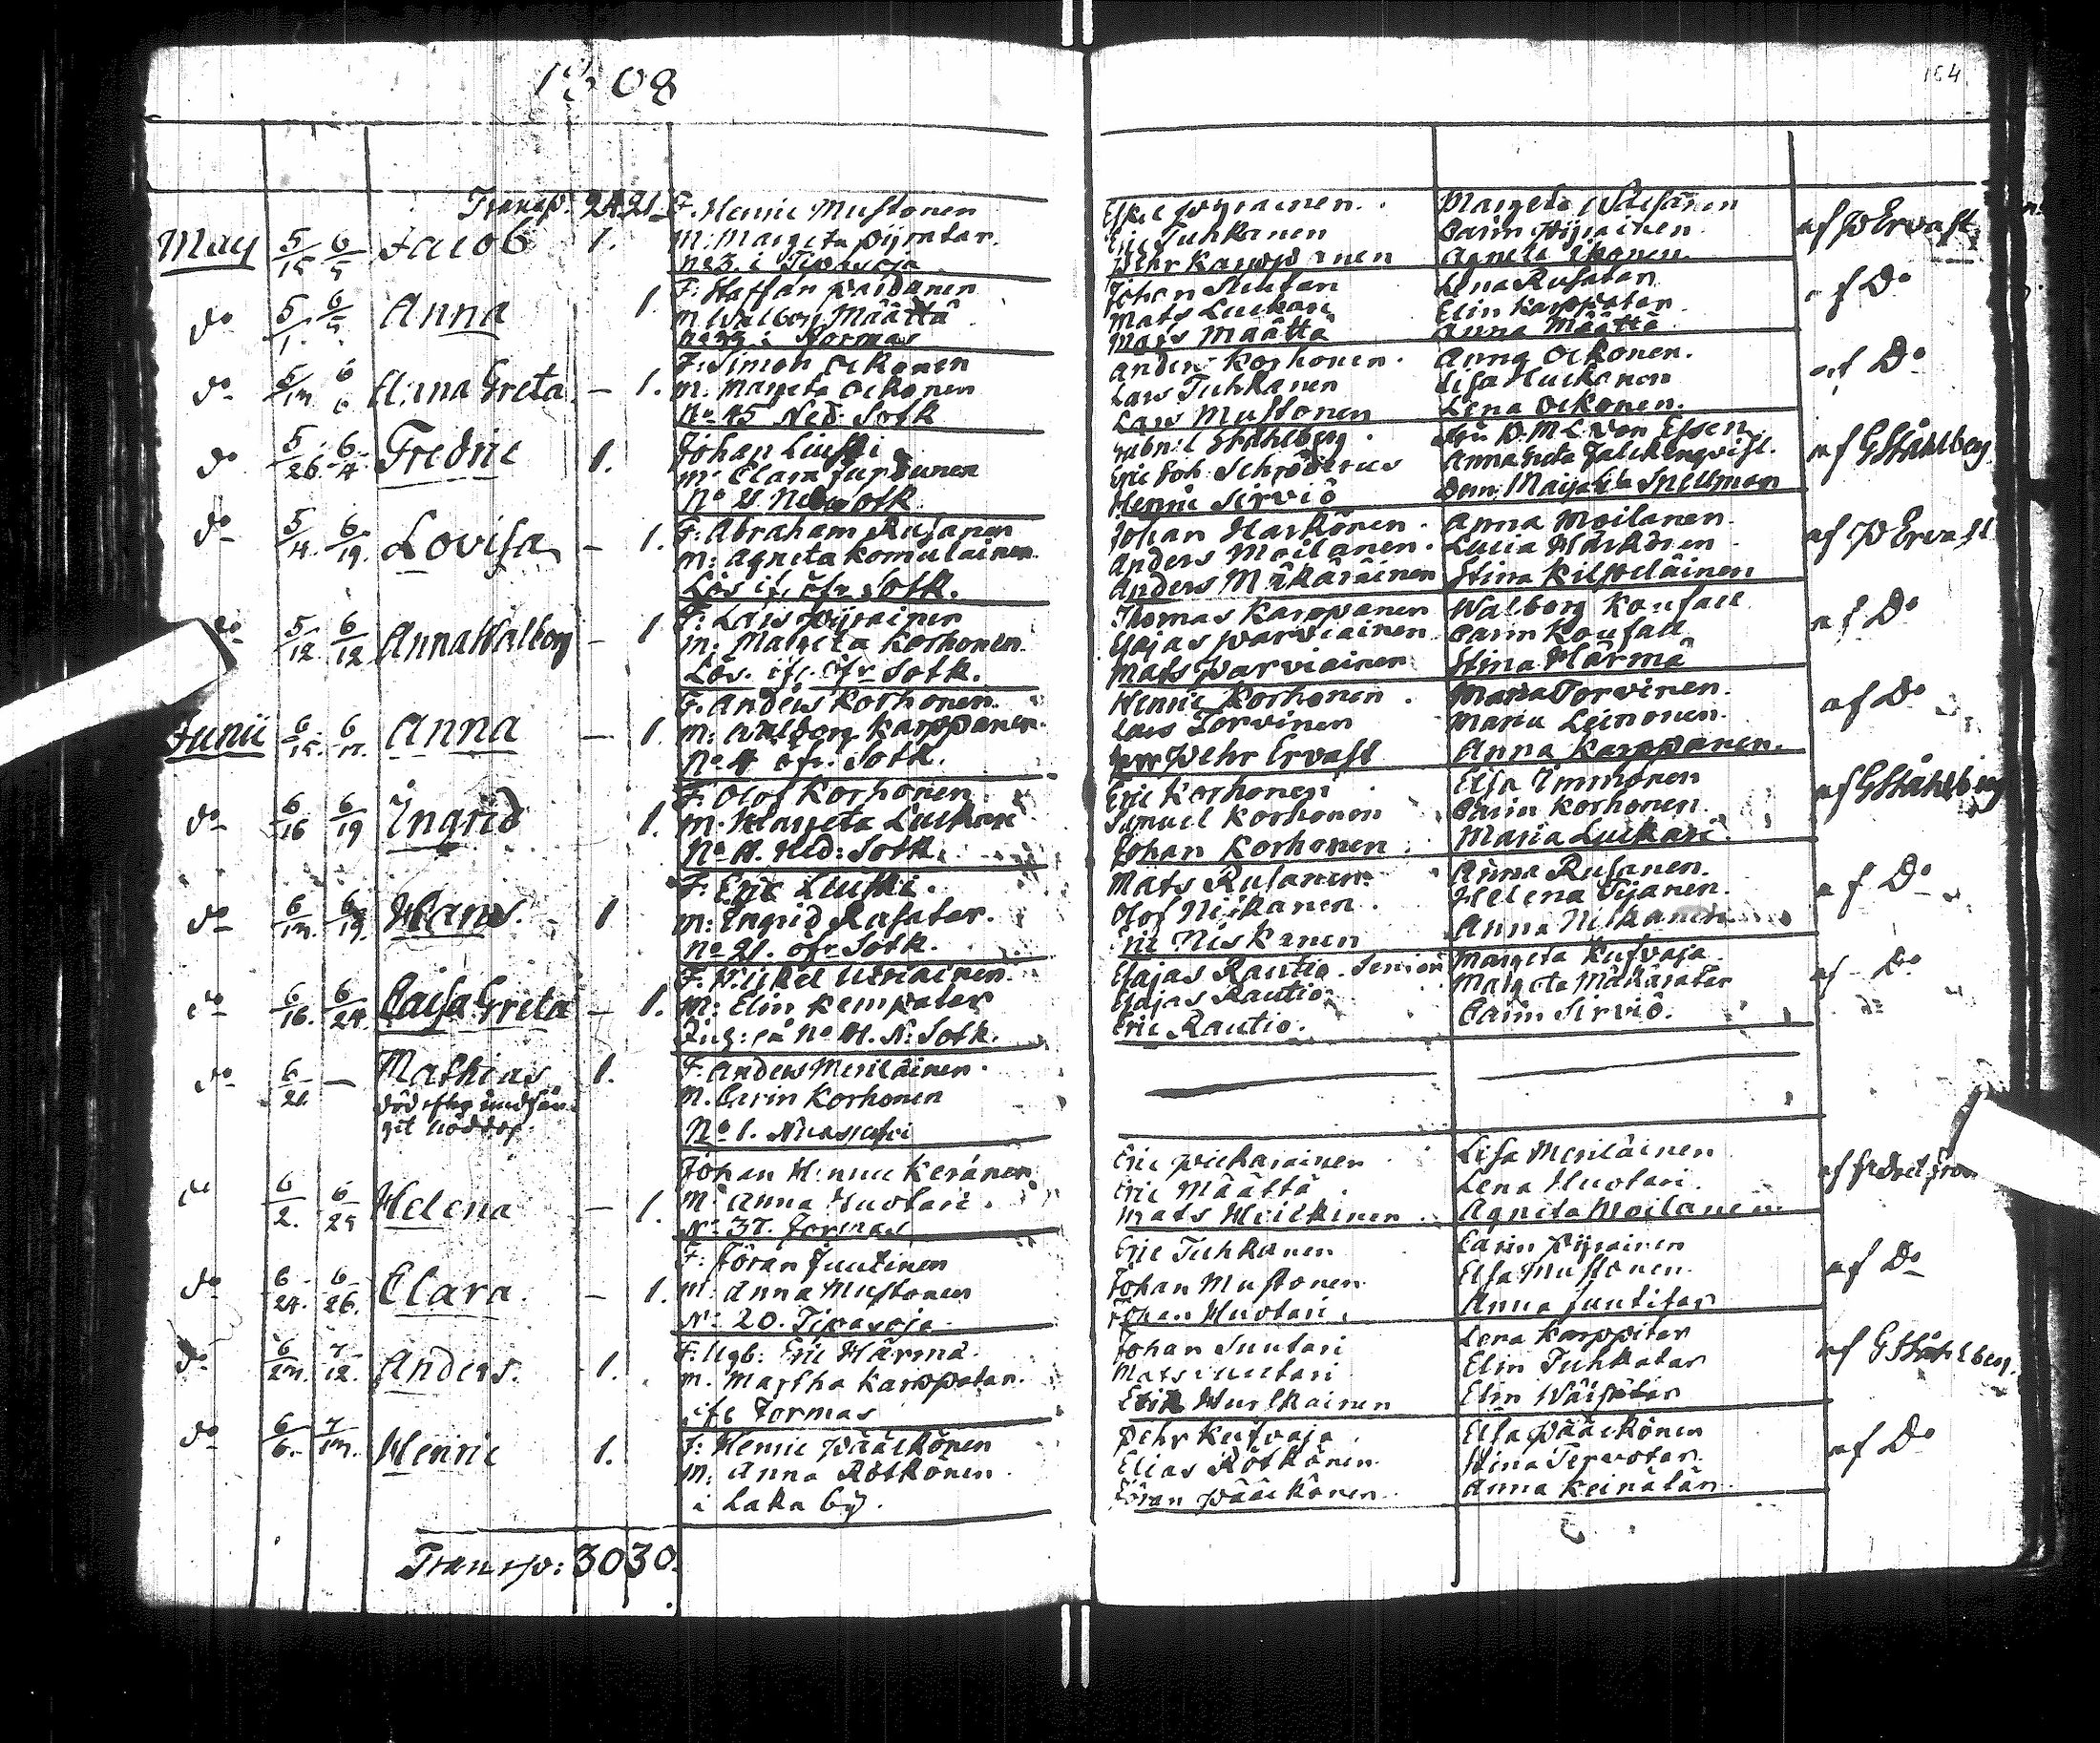 1808
104
Transp. 24. 21.
May 5/15 6/5 Jacob 1.
F. Henric Mustonen
M: Margeta Pyratar.
No 3. i Tipasoja
Eskel Pyrainen.
Eric Tuhkanen
Pehr Karppanen
Margeta Wäisänen
Carin Pyrainen
Agneta Ikonen
af P Ervast
do Anna 1.
F: Staffan
M. Walborg Määttä
Jormas
Johan
Mats Luckari
Mats Määttä
Lena Rusatar
Elin Karppatar
Anna Määttä
af Do
do Anna Greta – 1.
F: Simon Ockonen
M: Margeta Ockonen
No 45 Ned: Sotk
Anders Korhonen
Lars Tuhkanen
Lars Mustonen
Anna Ockonen.
Lisa Huckonen
Lena Ockonen.
af Do
do 5/26 6/4 Fredric 1.
Johan Liuski
M: Clara Juntunen
No 21. Neder Sotk
Gabriel Ståhlberg
Eric Joh. Schroderus
Henric Sirviö
Fru D. M L von Essen
Anna Greta Falckenqvist.
Dem: Maija Lis Snellman
af G Ståhlberg
do 5/4. 6/19. Lovisa – 1.
F: Abraham Rusanen
M: Agneta Komulainen.
Lös if. öfr Sotk.
Johan Harkönen
Anders Moilanen
Anders Mikäräinen
Anna Moilanen
Lucia Harkönen
Stina Kilpeläinen
af P Ervast
do 5/12 6/12 Anna Walborg – 1
F: Lars Pyrainen
M: Margeta Korhonen.
Lös. if. öfr Sotk.
Thomas Karppanen
Esajas Parviainen
Mats Parviainen
Walborg Kaufall
Carin Kaufall
Stina Härmä
af Do
Junii 6/15. 6/17. Anna – 1.
F. Anders Korhonen.
M: Walborg Karppanen.
No 4 öfr. Sotk.
Henric Korhonen
Lars Torvinen
Herr Pehr Ervast
Maria Torvinen.
Maria Leinonen.
Anna Karppanen.
af Do
do 6/16 6/19 Ingrid 1.
F. Olof Korhonen
M. Margeta Luckari
No 4. Ned: Sotk.
Eric Korhonen
Samuel Korhonen
Johan Korhonen
Elsa Immonen
Carin Korhonen
Maria Luckari
af G Ståhlberg
do 6/17. 6/19. Hans. 1
F: Eric Liuski.
M: Ingrid Rusatar.
No 21. öfr Sotk.
Mats Rusanen
Olof Niskanen
Eric Niskanen
Anna Rusanen.
Helena Piianen.
Anna Niskanen
af Do
do 6/16. 6/24. Caisa Greta – 1.
F. Mickel Uriainen.
M: Elin Kempatar
Inh: på No 41. N: Sotk.
Esajas Rautio Senior
Esajas Rautio
Eric Rautio.
Margeta Kufvaja
Margeta Mäkäratar
Carin Sirviö.
af Do
do 6/21 – Mathias 1.
död efter undfån-
git nöddop.
F. Anders Meriläinen.
M. Carin Korhonen
No 1. Nuasjärfvi
do 6/2. 6/25 Helena – 1.
Johan Henric Keränen
M: Anna Huotari.
No 37. Jormas
Eric Pickarainen
Eric Määttä
Mats Heickinen
Lisa Meriläinen
Lena Huotari.
Agneta Moilanen
do 6/24. 6/26. Clara. – 1.
F: Jöran Juutinen
M: Anna Mustonen
No 20. Tipasoja
Eric Tuhkanen
Johan Mustonen
Johan Huotari.
Carin Pyrainen
Elsa Mustonen.
Anna Juutitar
af Do
do 6/27. 7/12. Anders. 1.
F. Ugb: Eric Härmä.
M. Martha Karppatar.
ifr Jormas
Johan Juntari
Mats
Erik Hurskainen
Lena Karppatar
Elin Tuhkatar
Elin Wäisätar
af G Ståhlberg
do 6/6. 7/17. Henric 1.
F: Henric Pääckönen
M: Anna Rötkönen
i Laka by.
Pehr Kufvaja
Elias Rötkönen
Jöran Pääckönen
Elsa Pääckönen
Stina Tervotar.
Anna Keinätär
af Do
Transp: 30 30.